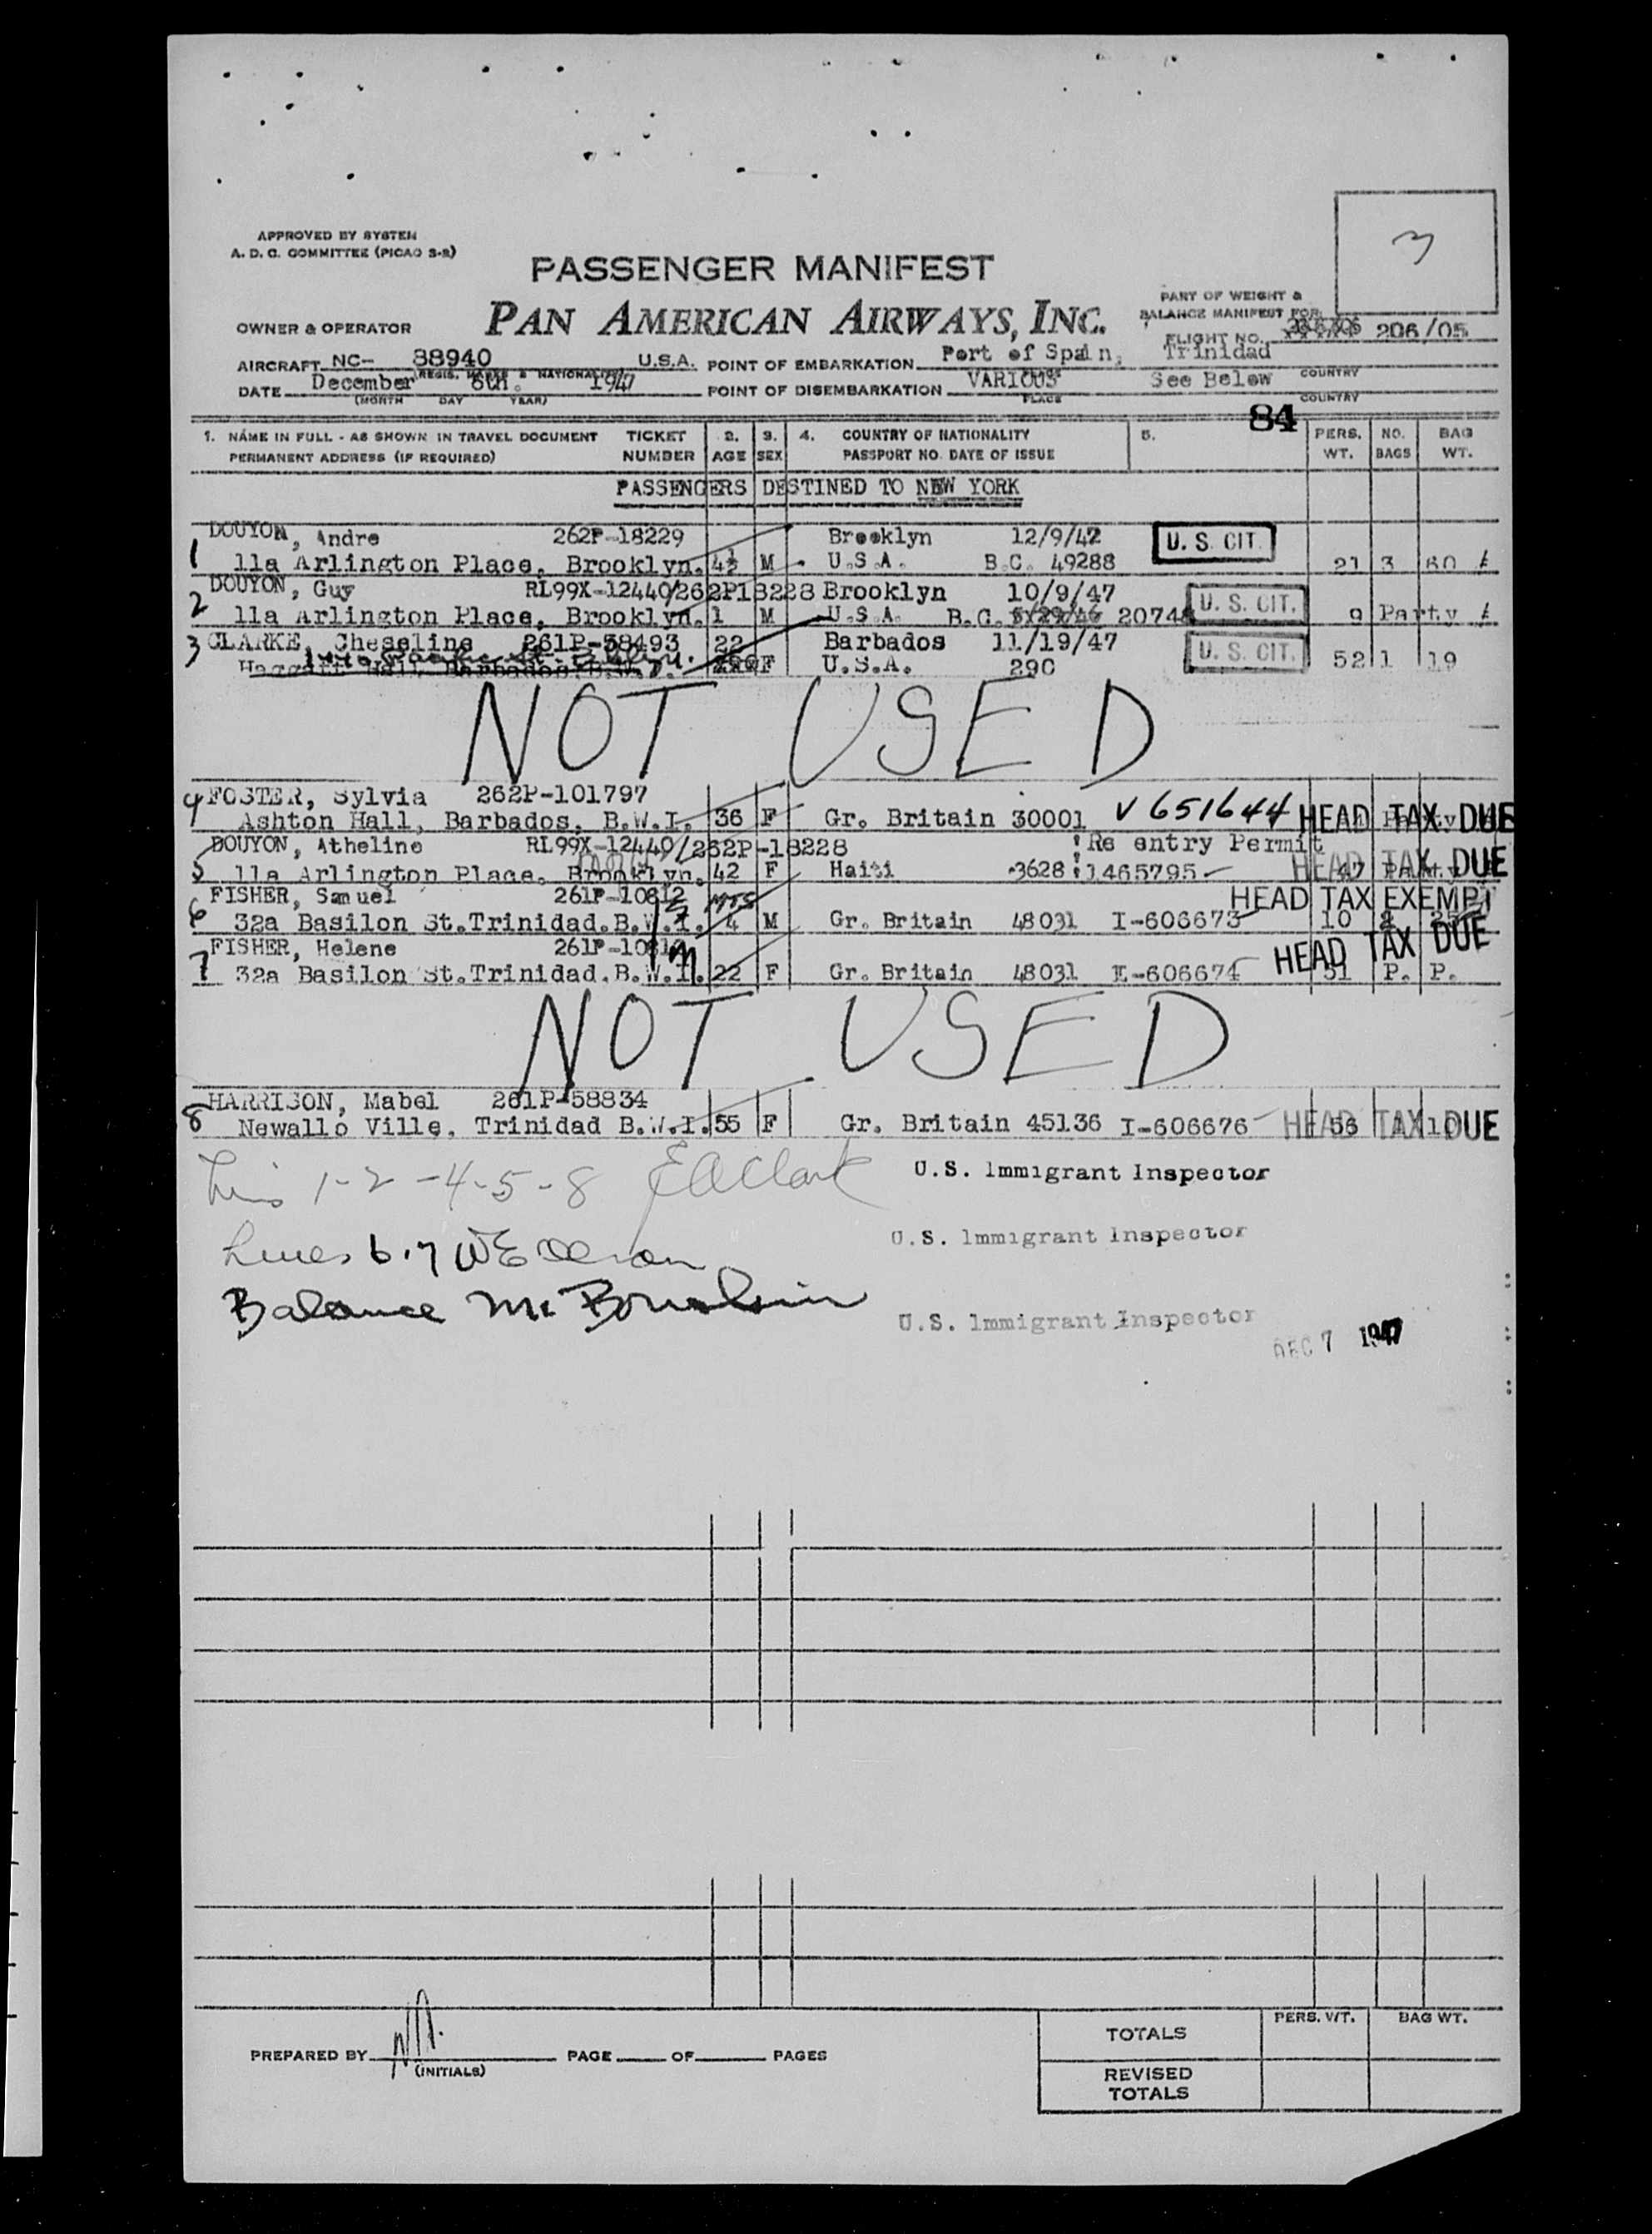 APPROVED BY SYSTEM
A. D. C. COMMITTEE (PICAO S-2)
3
PASSENGER MANIFEST
PAN AMERICAN AIRWAYS, INC.
PART OF WEIGHT &
BALANCE MANIFEST FOR
OWNER & OPERATOR
FLIGHT NO. 206/05
AIRCRAFT NC- 88940 U.S.A. POINT OF EMBARKATION Port of Spain, Trinidad
(REGIS. MARKS & NATIONALITY) COUNTRY
DATE December 6th. 1947 POINT OF DISEMBARKATION VARIOUS See Below
(MONTH DAY YEAR) PLACE COUNTRY
84
1. NAME IN FULL - AS SHOWN IN TRAVEL DOCUMENT TICKET 2. 3. 4. COUNTRY OF NATIONALITY 5. PERS. NO. BAG
PERMANENT ADDRESS (IF REQUIRED) NUMBER AGE SEX PASSPORT NO. DATE OF ISSUE WT. BAGS WT.
PASSENGERS DESTINED TO NEW YORK
DOUYON, Andre 262P-18229 Brooklyn 12/9/42 U. S. CIT.
1 11a Arlington Place, Brooklyn. 4½ M U.S.A. B.C. 49288 21 3 60
DOUYON, Guy RL99X-12440/262P18228 Brooklyn 10/9/47 U. S. CIT.
2 11a Arlington Place, Brooklyn. 1 M U.S.A. B.C. 20748 9 Party
3 CLARKE, Cheseline 261P-58493 22 Barbados 11/19/47 U. S. CIT.
F U.S.A. 290 52 1 19
NOT USED
4 FOSTER, Sylvia 262P-101797
Ashton Hall, Barbados, B.W.I. 36 F Gr. Britain 30001 V 651644 HEAD TAX DUE
DOUYON, Atheline RL99X-12440/262P-18228 Re entry Permit
5 11a Arlington Place, Brooklyn. 42 F Haiti 3628 1465795 47 HEAD TAX DUE
FISHER, Samuel 261P-10812 HEAD TAX EXEMPT
6 32a Basilon St.Trinidad.B.W.I. 4 M Gr. Britain 48031 I-606673 10
FISHER, Helene 261P-10812 HEAD TAX DUE
7 32a Basilon St.Trinidad.B.W.I. 22 F Gr. Britain 48031 I-606674 51 P. P.
NOT USED
HARRISON, Mabel 261P-58834
8 Newallo Ville, Trinidad B.W.I. 55 F Gr. Britain 45136 I-606676 56 HEAD TAX DUE
1-2-4-5-8 U.S. Immigrant Inspector
Lines 6.7 U.S. Immigrant Inspector
Balance U.S. Immigrant Inspector
DEC 7 1947
PREPARED BY PAGE OF PAGES
(INITIALS)
TOTALS PERS. WT. BAG WT.
REVISED
TOTALS